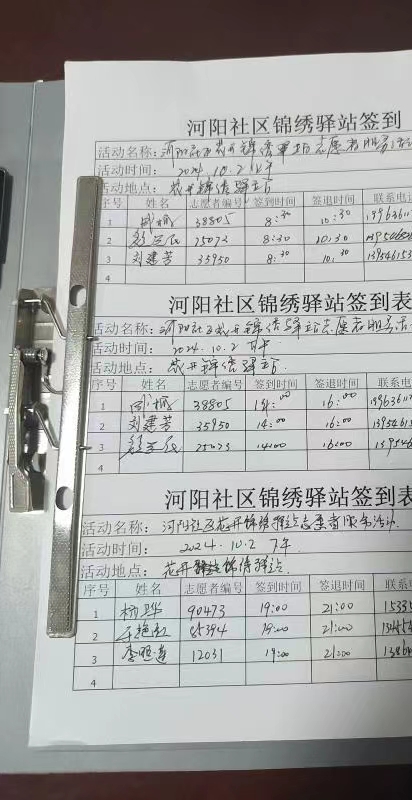 河阳社区锦绣驿站签到
活动名称：河阳社区花开锦绣驿站志愿者服务活
活动时间： 2024.10.2 上午
活动地点： 花开锦绣驿站
序号 姓名 志愿者编号 签到时间 签退时间 联系电
1 38805 8:30 10:30
2 25073 8:30 10:30
3 刘建芳 35950 8:30 10:30
4
河阳社区锦绣驿站签到表
活动名称：河阳社区花开锦绣驿站志愿者服务活
活动时间： 2024.10.2 下午
活动地点： 花开锦绣驿站
序号 姓名 志愿者编号 签到时间 签退时间 联系电
1 38805 14:00 16:00
2 刘建芳 35950 14:00 16:00
3 25073 14:00 16:00
4
河阳社区锦绣驿站签到表
活动名称： 河阳社区花开锦绣驿站志愿者服务活动
活动时间： 2024.10.2 下午
活动地点： 花开锦绣驿站
序号 姓名 志愿者编号 签到时间 签退时间 联系
1 90473 19:00 21:00
2 19:00 21:00
3 12031 19:00 21:00
4